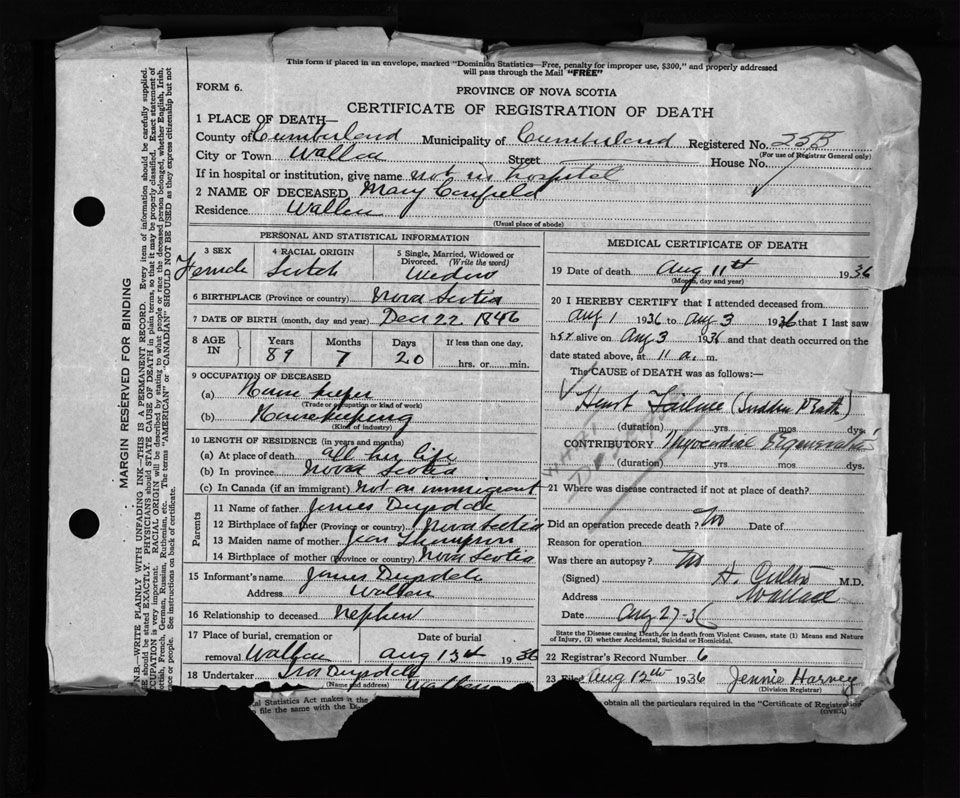 This form if placed in an envelope, marked "Dominion Statistics—Free, penalty for improper use, $300," and properly addressed
will pass through the Mail "FREE"
FORM 6.
PROVINCE OF NOVA SCOTIA
CERTIFICATE OF REGISTRATION OF DEATH
1 PLACE OF DEATH—
County of Cumberland Municipality of Cumberland Registered No. 25B
(For use of Registrar General only)
City or Town Wallace Street House No.
If in hospital or institution, give name not in hospital
2 NAME OF DECEASED Mary Canfield
Residence Wallace
(Usual place of abode)
PERSONAL AND STATISTICAL INFORMATION
3 SEX Female
4 RACIAL ORIGIN Scotch
5 Single, Married, Widowed or Divorced. (Write the word) Widow
6 BIRTHPLACE (Province or country) Nova Scotia
7 DATE OF BIRTH (month, day and year) Dec 22 1846
8 AGE IN Years 89 Months 7 Days 20 If less than one day, hrs. or min.
9 OCCUPATION OF DECEASED
(a) House keeper
(Trade occupation or kind of work)
(b) Housekeeping
(Kind of industry)
10 LENGTH OF RESIDENCE (in years and months)
(a) At place of death all her life
(b) In province Nova Scotia
(c) In Canada (if an immigrant) not an immigrant
Parents
11 Name of father James
12 Birthplace of father (Province or country) Nova Scotia
13 Maiden name of mother Jean Thompson
14 Birthplace of mother (Province or country) Nova Scotia
15 Informant's name James
Address Wallace
16 Relationship to deceased Nephew
17 Place of burial, cremation or Date of burial
removal Wallace Aug 13th 1936
18 Undertaker
(Name and address) Wallace
MEDICAL CERTIFICATE OF DEATH
19 Date of death Aug 11th 1936
(Month, day and year)
20 I HEREBY CERTIFY that I attended deceased from
Aug 1 1936 to Aug 3 1936 that I last saw
her alive on Aug 3 1936 and that death occurred on the
date stated above, at 11 a. m.
The CAUSE OF DEATH was as follows:—
Heart Failure (Sudden Death)
(duration) yrs. mos. dys.
CONTRIBUTORY Myocardial Degeneration
(duration) yrs. mos. dys.
21 Where was disease contracted if not at place of death?
Did an operation precede death? No Date of
Reason for operation
Was there an autopsy? No
(Signed) H. M.D.
Address Wallace
Date Aug 27-36
State the Disease causing Death, or in death from Violent Causes, state (1) Means and Nature
of Injury, (2) whether Accidental, Suicidal or Homicidal.
22 Registrar's Record Number 6
23 Filed Aug 12th 1936 Jennie Harvey
(Division Registrar)
al Statistics Act makes it the
file the same with the D
obtain all the particulars required in the "Certificate of Registration
(OVER)
MARGIN RESERVED FOR BINDING
N.B.—WRITE PLAINLY WITH UNFADING INK—THIS IS A PERMANENT RECORD. Every item of information should be carefully supplied.
AGE should be stated EXACTLY. PHYSICIANS should STATE CAUSE OF DEATH in plain terms, so that it may be properly classified. Exact statement of
OCCUPATION is very important. RACIAL ORIGIN will be described by stating to what people or race the deceased person belonged, whether English, Irish,
Scottish, French, German, Russian, Ruthenian, etc. The terms "AMERICAN" or "CANADIAN" SHOULD NOT BE USED as they express citizenship but not
race or people. See instructions on back of certificate.